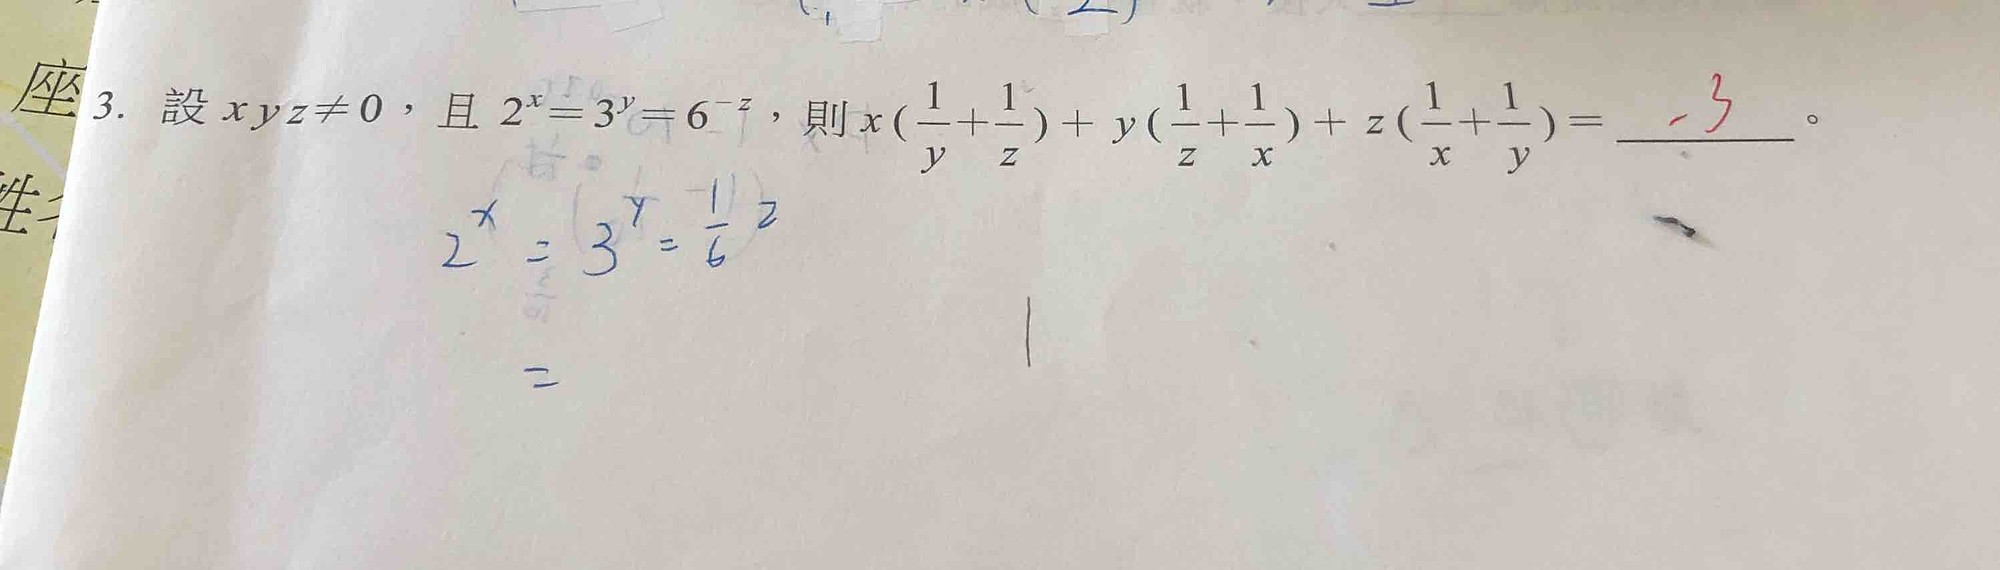 座
3. 設 xyz≠0，且 2^x=3^y=6^{-z}，則 x(1/y+1/z)+y(1/z+1/x)+z(1/x+1/y)= -3 。
2^x = 3^y = 1/6^z
=